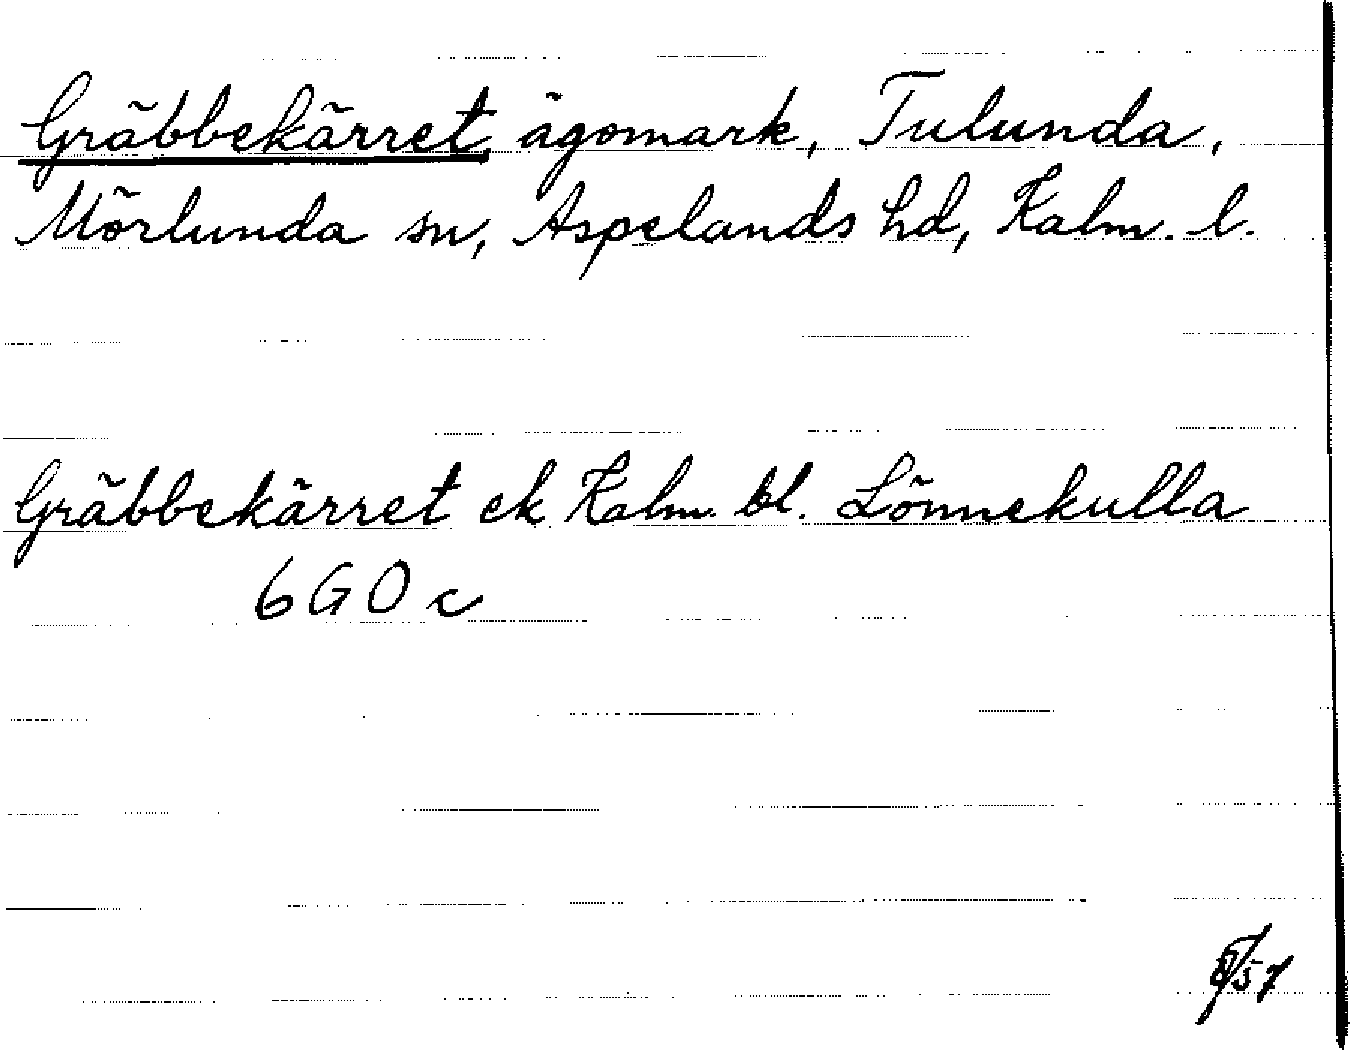 Gräbbekärret ägomark, Tulunda,
Mörlunda sn, Aspelands hd, Kalm. l.
Gräbbekärret ek Kalm. bl. Lönnekulla
6 G 0 c